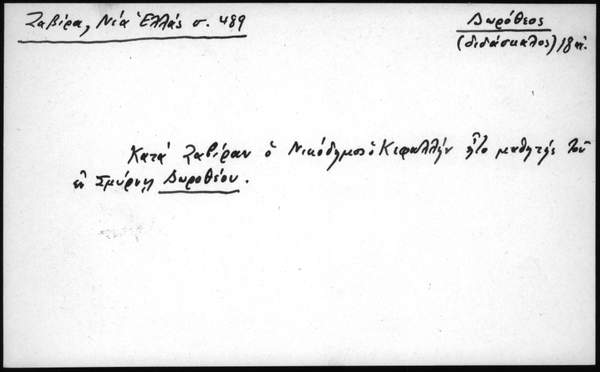 Ζαβίρα, Νέα Ἑλλάς σ. 489
Δωρόθεος
(διδάσκαλος) 18 αἰ.
Κατά Ζαβίραν ὁ Νικόδημος ὁ Κεφαλλήν ἦτο μαθητής τοῦ
ἐν Σμύρνῃ Δωροθέου.